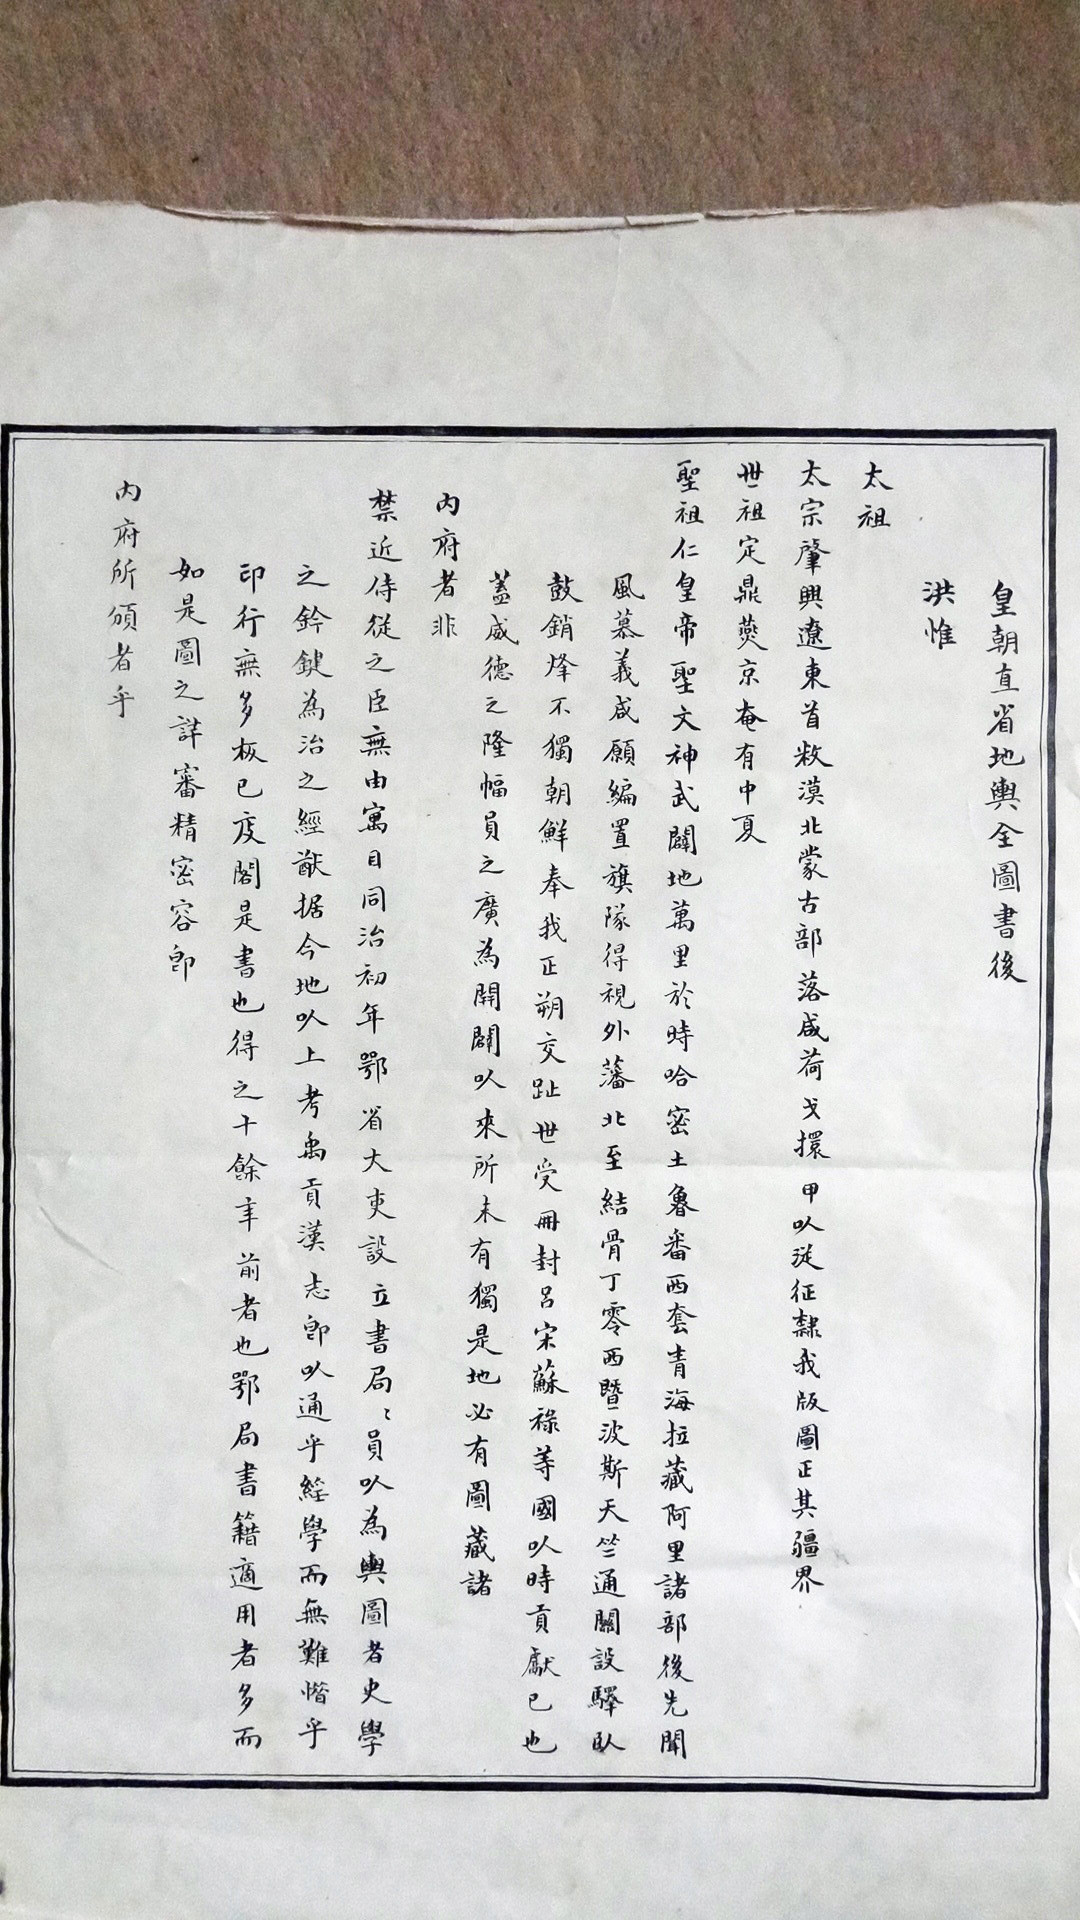 皇朝直省地輿全圖書後
洪惟
太祖
太宗肇興遼東首敉漠北蒙古部落咸荷戈擐甲以從征隸我版圖正其疆界
世祖定鼎燕京奄有中夏
聖祖仁皇帝聖文神武闢地萬里於時哈密土魯番西套青海拉藏阿里諸部後先聞
風慕義咸願編置旗隊得視外藩北至結骨丁零西暨波斯天竺通關設驛臥
鼓銷烽不獨朝鮮奉我正朔交趾世受冊封呂宋蘇祿等國以時貢獻已也
蓋威德之隆幅員之廣為開闢以來所未有獨是地必有圖藏諸
內府者非
禁近侍從之臣無由寓目同治初年鄂省大吏設立書局〻員以為輿圖者史學
之鈐鍵為治之經猷据今地以上考禹貢漢志即以通乎經學而無難惜乎
印行無多板已庋閣是書也得之十餘年前者也鄂局書籍適用者多而
如是圖之詳審精密容即
內府所頒者乎